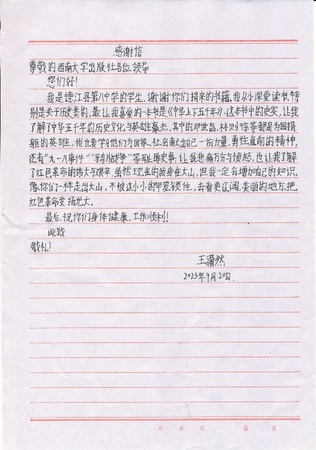 感谢信
尊敬的西南大学出版社各位领导
您们好！
我是德江县第八中学的学生，谢谢你们捐来的书籍，我从小深爱读书，特
别是关于历史类的，最让我喜爱的一本书是《中华上下五千年》，这本书中的史实，让我
了解了中华五千年的历史文化与英雄，其中的邓世昌、林则徐等都是为国捐
躯的英雄，我也要学习他们为国家、社会献出自己一份力量，勇往直前的精神，
还有"九一八事件""鸦片战争"等屈辱史事，让我悲痛万分与愤怒，也让我了解
了红色革命的伟大与艰辛，虽然现在的我身在大山，但我一定会增加自己的知识，
像你们一样走出大山，不被这小小的甲是锁住，去看更辽阔、美丽的地方，把
红色革命变扬光大。
最后，祝你们身体健康、工作顺利！
此致
敬礼！
王潇然
2025年9月20日